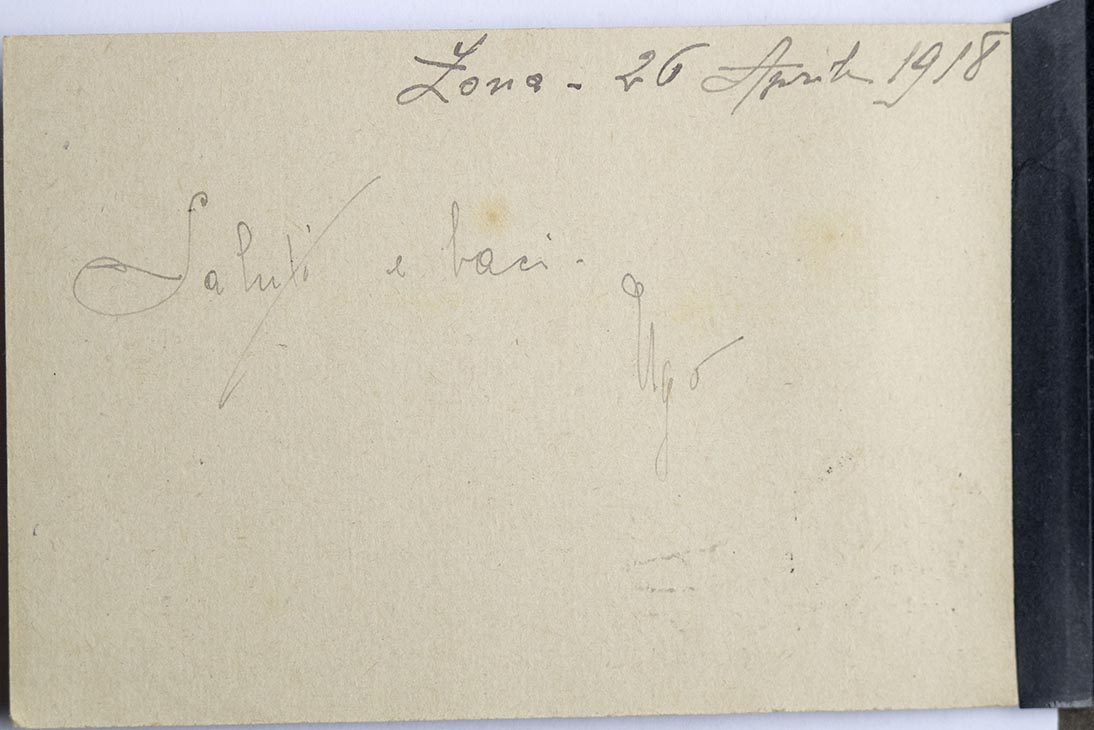 Zona - 26 Aprile 1918
Saluti e baci.
Ugo